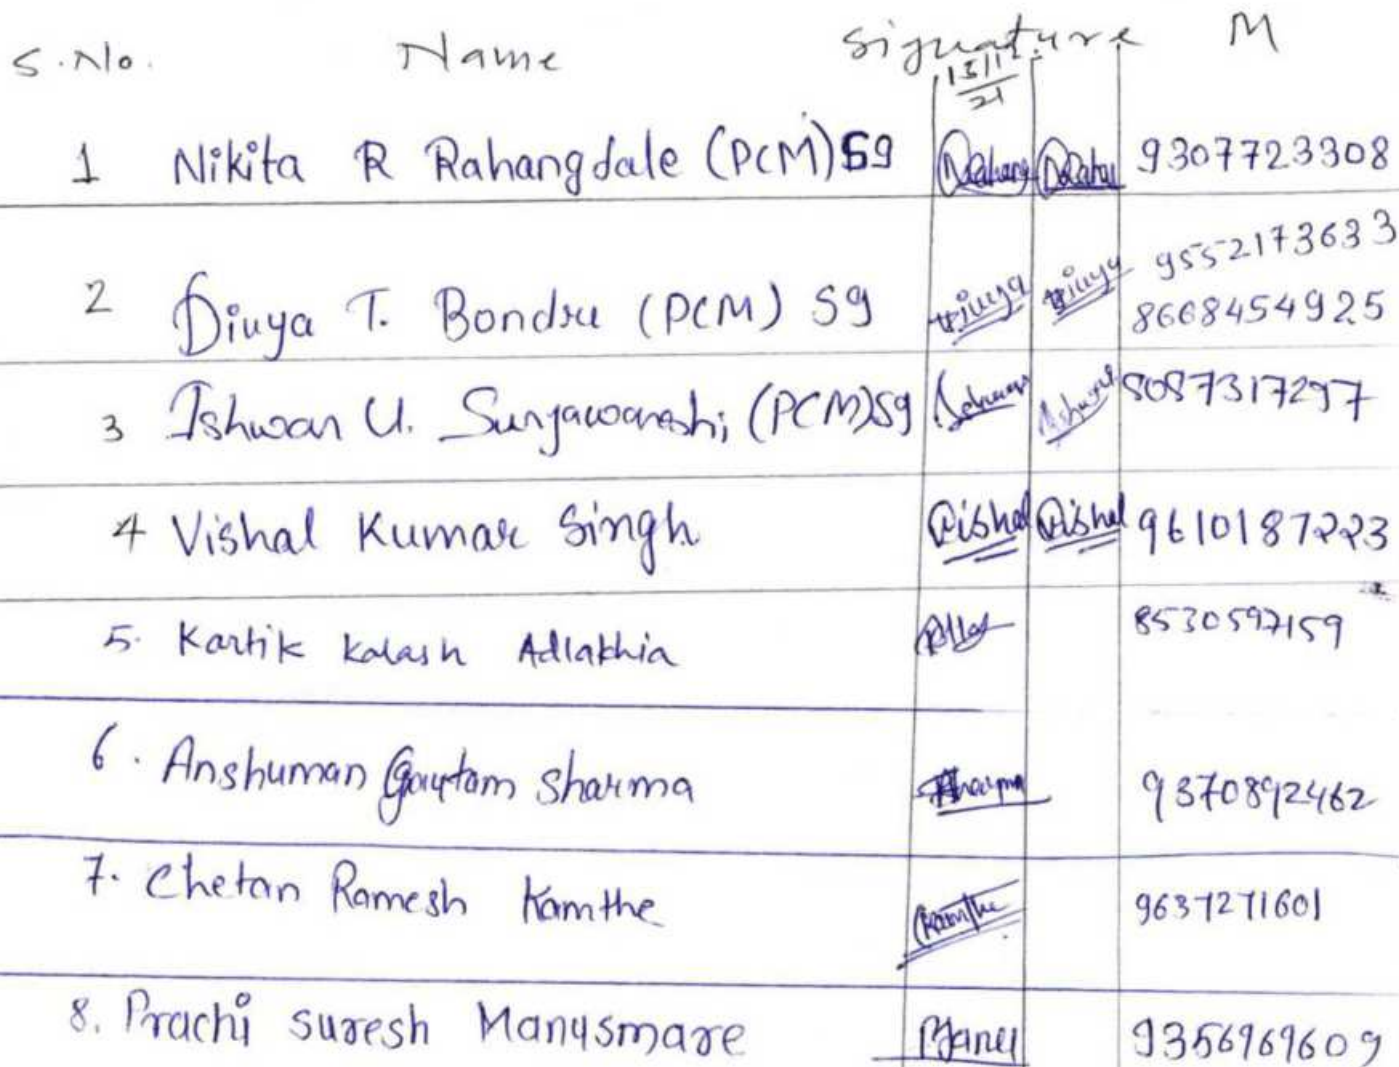 S.No. Name Signature M
13/12/21
1 Nikita R Rahangdale (PCM) S9 9307723308
2 Divya T. Bondre (PCM) S9 Divya Divya 9552173633
8668454925
3 Ishwar U. Suryawanshi (PCM) S9 Ishwar 8087317297
4 Vishal Kumar Singh Vishal Vishal 9610187223
5. Kartik Kalash Adlakhia 8530597159
6. Anshuman Gautam Sharma Sharma 9370892462
7. Chetan Ramesh Kamthe Kamthe 9637271601
8. Prachi suresh Manusmare 9356969609